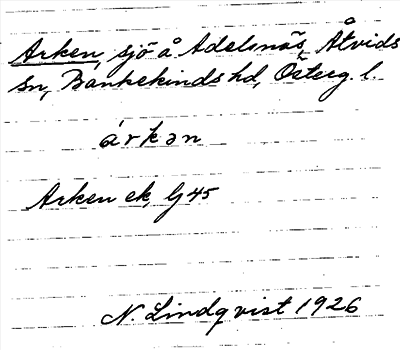 Arken, sjö å Adelsnäs, Åtvids
sn, Bankekinds hd, Österg. l.
árkən
Arken ek, G 45
N. Lindqvist 1926